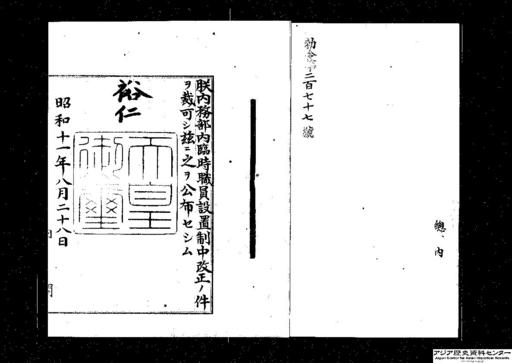 勅令第二百七十七號
總、內
朕內務部內臨時職員設置制中改正ノ件
ヲ裁可シ玆ニ之ヲ公布セシム
裕仁
天皇御璽
昭和十一年八月二十八日
アジア歴史資料センター
Japan Center for Asian Historical Records